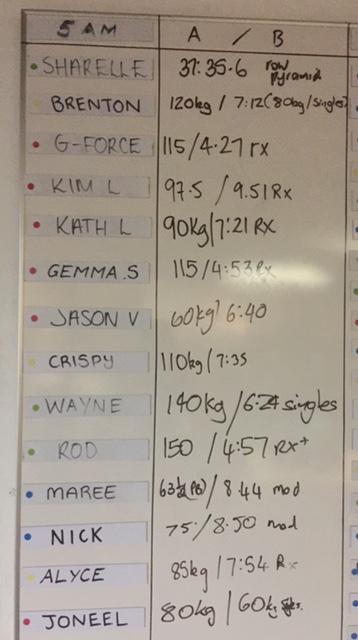 5 AM A / B
SHARELLE 37:35.6 row pyramid
BRENTON 120kg / 7:12 (80kg/singles)
G-FORCE 115/4.27 rx
KIM L 97.5 / 9.51 Rx
KATH L 90kg/7:21 RX
GEMMA.S 115/4:53 Rx
JASON V 60kg/ 6:40
CRISPY 110kg/7:35
WAYNE 140kg/6:24 singles
ROD 150 / 4:57 RX+
MAREE 63½(PB)/8.44 mod
NICK 75/8.50 mod
ALYCE 85kg/7:54 Rx
JONEEL 80kg/60kg